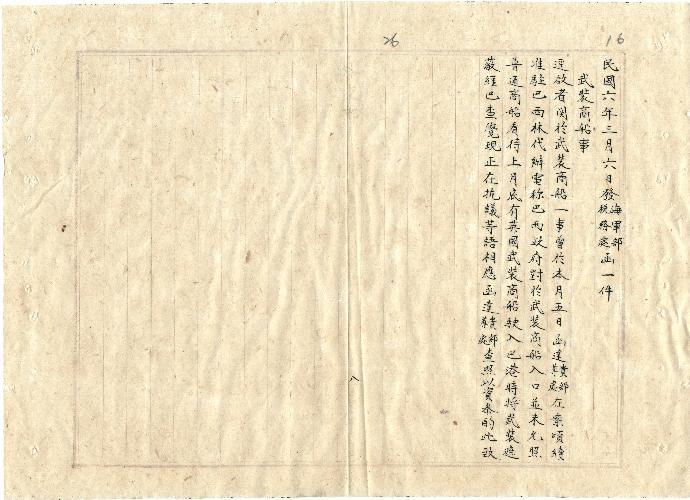 16
26
民國六年三月六日發海軍部稅務處函一件
武裝商船事
逕啟者関於武裝商船一事曾於本月五日函達貴部貴處在案頃續
准駐巴西林代辦電稱巴西政府對於武裝商船入口並未允照
普通商船看待上月底有英國武裝商船駛入巴港時將武裝隐
蔽經巴查覺現正在抗議等語相應函達貴部貴處查照以資參酌此致
八